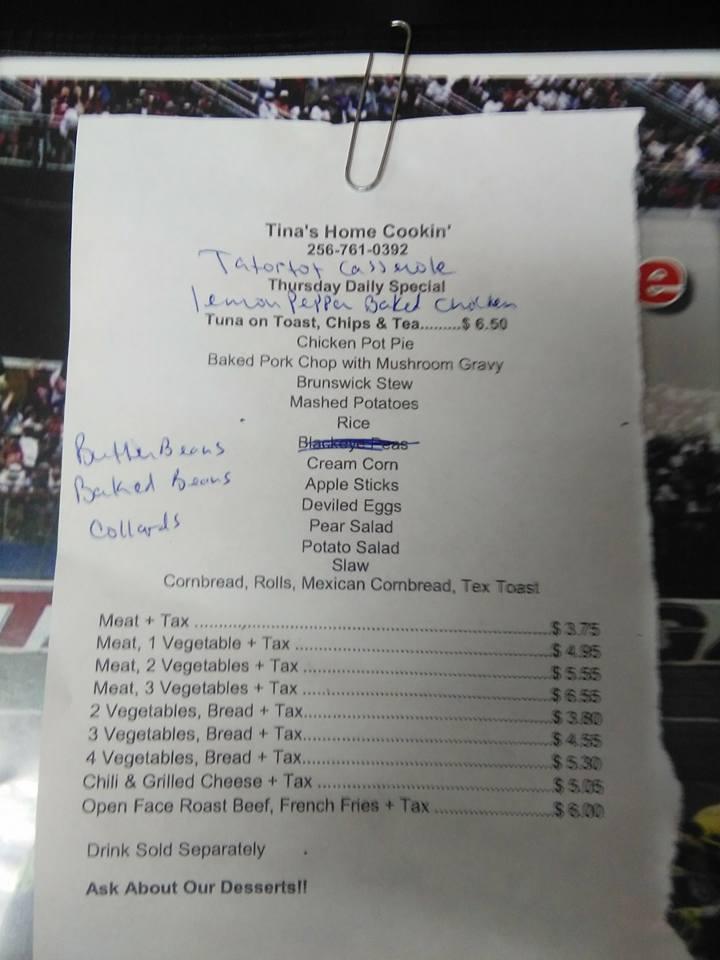 Tina's Home Cookin'
256-761-0392
Tatortot Casserole
Thursday Daily Special
lemon Pepper Baked Chicken
Tuna on Toast, Chips & Tea.........$ 6.50
Chicken Pot Pie
Baked Pork Chop with Mushroom Gravy
Brunswick Stew
Mashed Potatoes
Rice
Blackeye Peas
Butter Beans
Cream Corn
Baked Beans
Apple Sticks
Deviled Eggs
Collards
Pear Salad
Potato Salad
Slaw
Cornbread, Rolls, Mexican Cornbread, Tex Toast
Meat + Tax ............$ 3.75
Meat, 1 Vegetable + Tax ............$ 4.95
Meat, 2 Vegetables + Tax ............$ 5.55
Meat, 3 Vegetables + Tax ............$ 6.55
2 Vegetables, Bread + Tax............$ 3.80
3 Vegetables, Bread + Tax............$ 4.55
4 Vegetables, Bread + Tax............$ 5.30
Chili & Grilled Cheese + Tax ............$ 5.05
Open Face Roast Beef, French Fries + Tax ............$ 6.00
Drink Sold Separately
Ask About Our Desserts!!
e